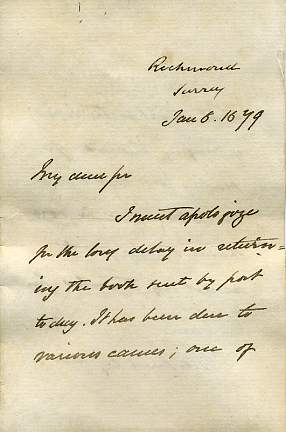 Richmond
Surrey
Jan 6. 1879
My dear sir
I must apologize
for the long delay in return=
ing the book sent by post
today. It has been due to
various causes; one of